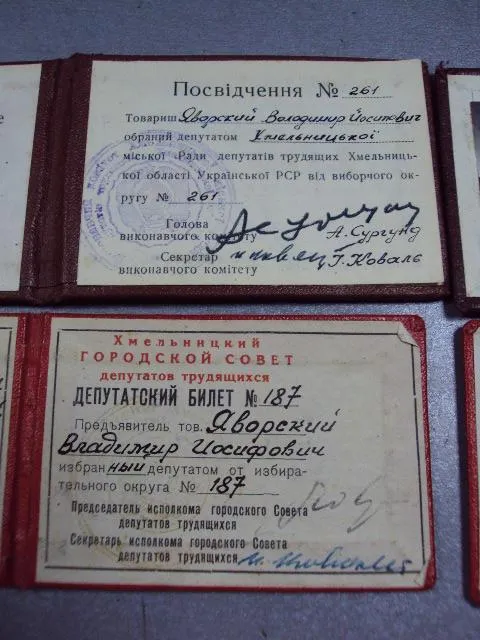 Посвідчення № 261
Товариш Яворский Володимир Йосипович
обраний депутатом Хмельницької
міської Ради депутатів трудящих Хмельниць-
кої області Української РСР від виборчого ок-
ругу № 261
Голова
виконавчого комітету А. Сургунд
Секретар
виконавчого комітету Г. Коваль
Хмельницкий
ГОРОДСКОЙ СОВЕТ
депутатов трудящихся
ДЕПУТАТСКИЙ БИЛЕТ № 187
Предъявитель тов. Яворский
Владимир Иосифович
избранный депутатом от избира-
тельного округа № 187
Председатель исполкома городского Совета
депутатов трудящихся
Секретарь исполкома городского Совета
депутатов трудящихся